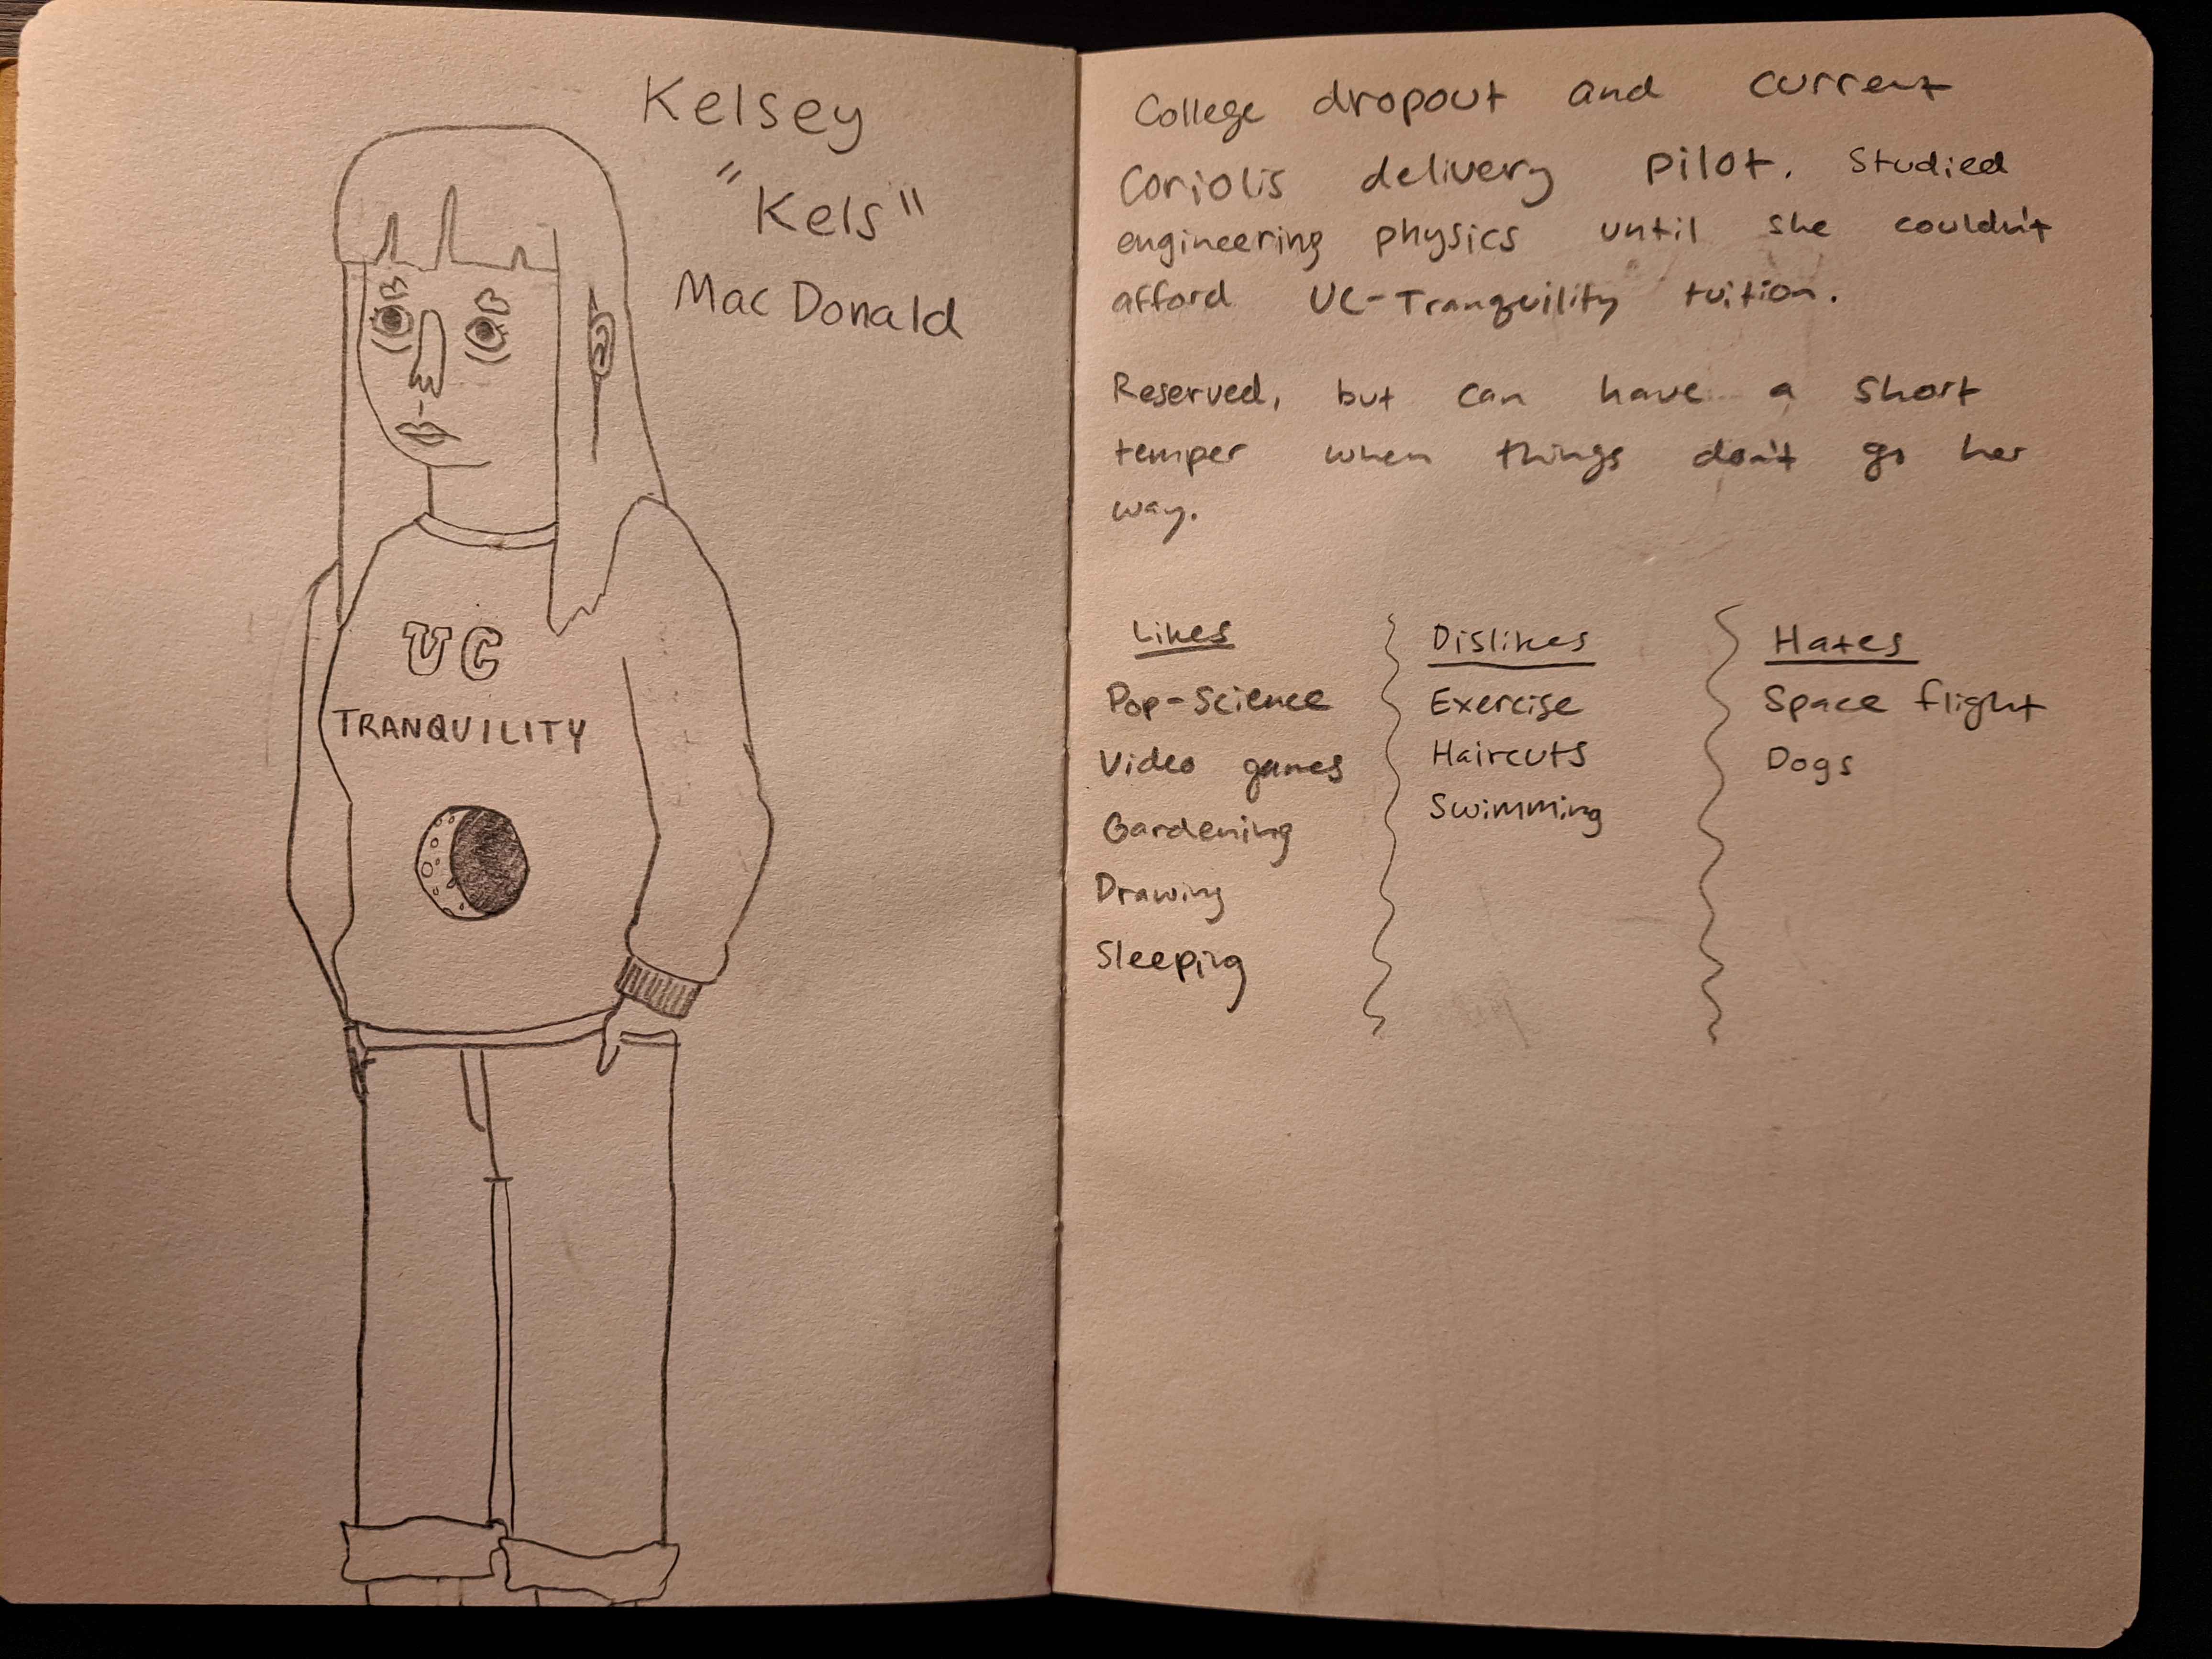 Kelsey
"Kels"
MacDonald
UC
TRANQUILITY
College dropout and current
Coriolis delivery pilot. Studied
engineering physics until she couldn't
afford UC-Tranquility tuition.
Reserved, but can have a short
temper when things don't go her
way.
Likes
Pop-Science
Video games
Gardening
Drawing
Sleeping
Dislikes
Exercise
Haircuts
Swimming
Hates
Space flight
Dogs